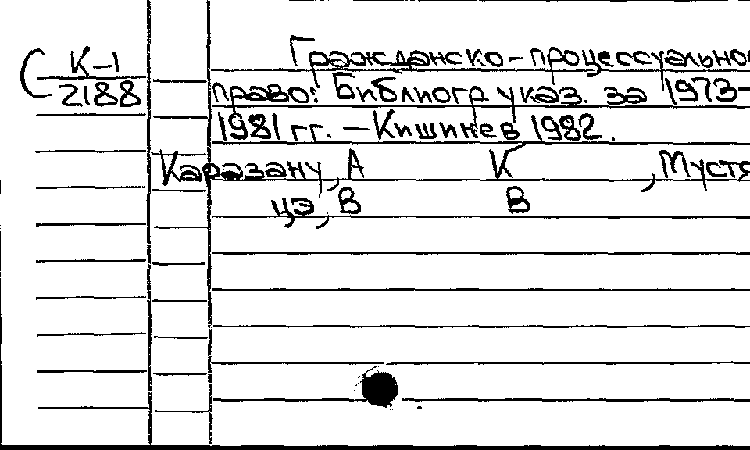 К-1
2188
Гражданско-процессуально
право: Библиогр указ. за 1973-
1981 гг. - Кишинев 1982.
Каразану, А К , Мустя
цэ, В В